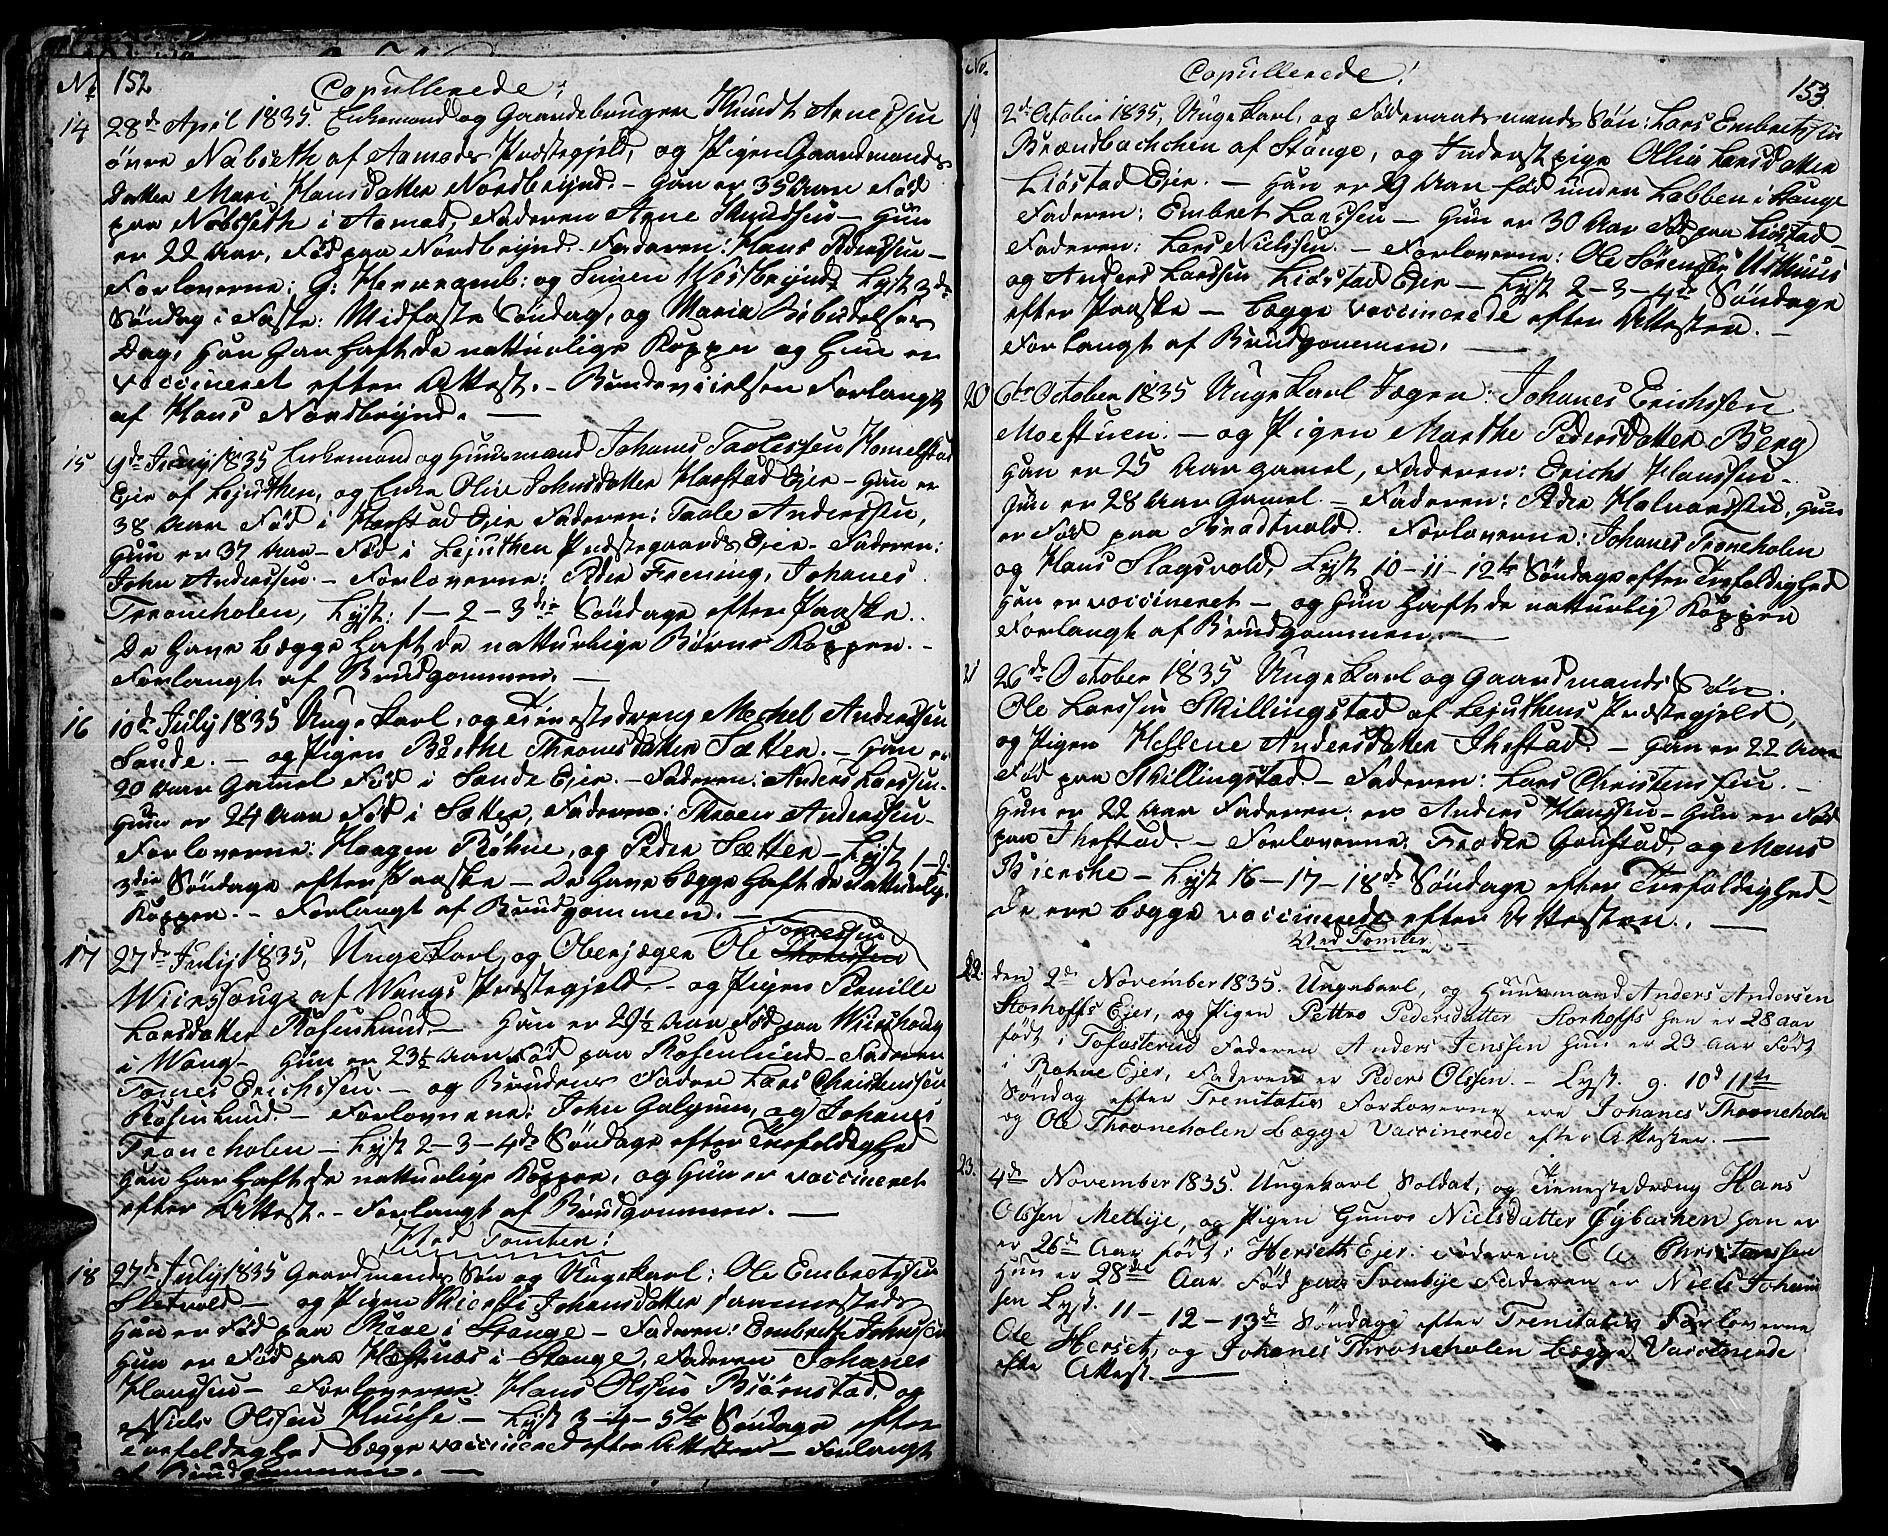 No. 152 Copullerede:
14 28de April 1835 Enkemand og Gaardebruger Knudt Arnessen
øvre Nabseth af Aamods Præstegjeld, og Pigen Gaardmands
Datter Mari Hansdatter Nordbrynd. - Han er 35 Aar Fød
paa Nabseth i Aamod, Faderen Arne Knudssen - Hun
er 22 Aar, Fød paa Nordbrynd. Faderen: Hans Pedersen -
Forloverne: G: Herrramb: og Simen Westbrynd, Lyst 3de
Søndag i Faste: Midfaste Søndag, og Maria Bebudelses
Dag, Han har haft de naturlige Kopper og Hun er
vaccineret efter Attest. - Brudevielsen Forlangt
af Hans Nordbrynd. -
15 9de Juny 1835 Enkemand og Huusmand Johanes Taalessen Homelstad
Ejer af Lejuthen, og Enke Olia Johnsdatter Harstad Ejer - Han er
38 Aar Fød i Harstad Ejer Faderen: Taale Anderssen,
Hun er 37 Aar - Fød i Lejuthen Præstegaards Ejer - Faderen:
John Anderssen. - Forloverne: Peder Frening, Johanes
Troneholen, Lyst: 1 - 2 - 3die Søndage efter Paaske.
De have begge haft de naturlige Børne Kopper. -
Forlangt af Brudgommen. -
16 10de July 1835 Unge Karl, og Tienestedreng Mechel Anderssen
Sande. - og Pigen Birthe Thronesdatter Sætter. - Han er
20 Aar Gamel Fød i Sande Ejer. - Faderen: Anders Larssen.
Hun er 24 Aar Fød i Sætter, Faderen: Throen Anderssen -
Forloverne: Haagen Røhne, og Peder Sætter - Lyst 1 - 2 -
3die Søndage efter Paaske - De have begge haft de naturlig
Kopper. - Forlangt af Brudgommen. -
Tomessen
17 27de July 1835, Unge Karl, og Oberjæger Ole
af Wangs Præstegjeld - og Pigen Pernille
Larsdatter Rosenlund. - Han er 29½ Aar Fød paa
i Wang - Hun er 23½ Aar Fød paa Rosenlund - Faderen
Tomes Erichssen. - og Brudens Fader Lars Christenssen
Rosenlund. - Forloverne: John Galgum, og Johanes
Troneholen - Lyst 2 - 3 - 4de Søndage efter Trefoldighed
Han har haft de naturlige Kopper, og Hun er vaccineret
efter Attest. - Forlangt af Brudgommen. -
Ved Tomten:
18 27de July 1835 Gaardmands Søn og Unge Karl: Ole Embretssen
Sletvold - og Pigen Kiersti Johansdatter
Han er Fød paa i Stange - Faderen: Embrett Johnssen
Hun er Fød paa Hæstnæs i Stange, Faderen Johanes
Hanssen - Forloverne Hans Olssen Biørnstad, og
Niels Olssen Huuse - Lyst 3 - 4 - 5te Søndage efter
Trefoldighed begge vaccinered efter Attester - Forlangt
af Brudgommen. -
No. Copullerede! 153
19 2de October 1835, Unge Karl, og Føderaadsmands Søn: Lars Embretssen
Brændbachchen af Stange, og Inderst pige Olia Larsdatter
Liøstad Ejer. - Han er 29 Aar fød under Labben i Stange
Faderen: Embret Larssen - Hun er 30 Aar Fød paa Liøstad -
Faderen: Lars Nielssen. - Forloverne: Ole Sørenssen
og Anders Larssen Liøstad Ejer - Lyst 2 - 3 - 4de Søndage
efter Paaske - begge vaccinerede efter Attesten. -
Forlangt af Brudgommen. -
20 6te October 1835 Unge Karl Jæger: Johanes Erichssen
Moestuen. - og Pigen Marthe Pedersdatter Berg
Han er 25 Aar gamel, Faderen: Erich Hanssen -
Hun er 28 Aar Gamel. - Faderen: Peder Halvordssen, Hun
er Fød paa Bradtvold. Forloverne: Johanes Troneholen
og Hans Slagsvold, Lyst 10 - 11 - 12te Søndage efter Trefoldighed
Han er vaccineret - og Hun haft de naturlig Kopper
Forlangt af Brudgommen. -
21 26de October 1835 Unge Karl og Gaardmands Søn.
Ole Larssen Skillingstad af Lejuthens Præstegjeld,
og Pigen Hellene Andersdatter Ihestad. - Han er 22 Aar
Fød paa Skillingstad - Faderen: Lars Christenssen. -
Hun er 22 Aar Faderen: er Anders Hanssen - Hun er Fød
paa Ihestad. - Forloverne: Froder Gaustad, og Mons
Biercke - Lyst 16 - 17 - 18de Søndage efter Trefoldighed -
De ere begge vaccinerede efter Attesten. -
Ved Tomter -
22. den 2de November 1835. Ungekarl, og Huusmand Anders Andersen
Storhoffs Ejer, og Pigen Pettro Pedersdatter Storhoffs Han er 28 Aar
født i Tofasterud Faderen Anders Jenssen Hun er 23 Aar Født
i Røhne Ejer, Faderen er Peder Olssen. - Lyst. 9. 10d 11te
Søndag efter Trenitatis Forloverne ere Johanes Throneholn
og Ole Throneholen begge Vaccinerede efter Attester. -
23. 4de November 1835. Ungekarl Soldat, og Tienestedræng Hans
Olssen Mettije, og Pigen Gunor Nielsdatter Øybacken Han er
er 26de Aar født i Herseth Ejer. Faderen Ole Christenssen
Hun er 28de Aar Fød paa Trenbije Faderen er Niels Johan
sen Lyst. 11 - 12 - 13de Søndage efter Trenitatis Forloverne
Ole Herset, og Johanes Throneholen begge Vaccinerede
efter Attest. -